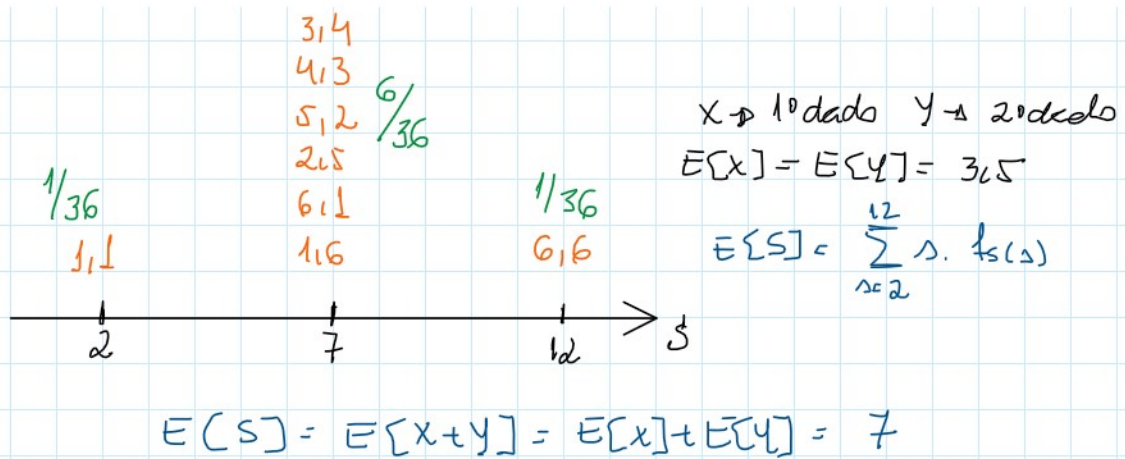 3,4
4,3
5,2
2,5
6,1
1,6
6/36
1/36
1,1
1/36
6,6
2
7
12
S
X → 1º dado Y → 2º dado
E[X] = E[Y] = 3,5
E[S] = 12 ∑ s=2 s. fs(s)
E[S] = E[X+Y] = E[X]+E[Y] = 7